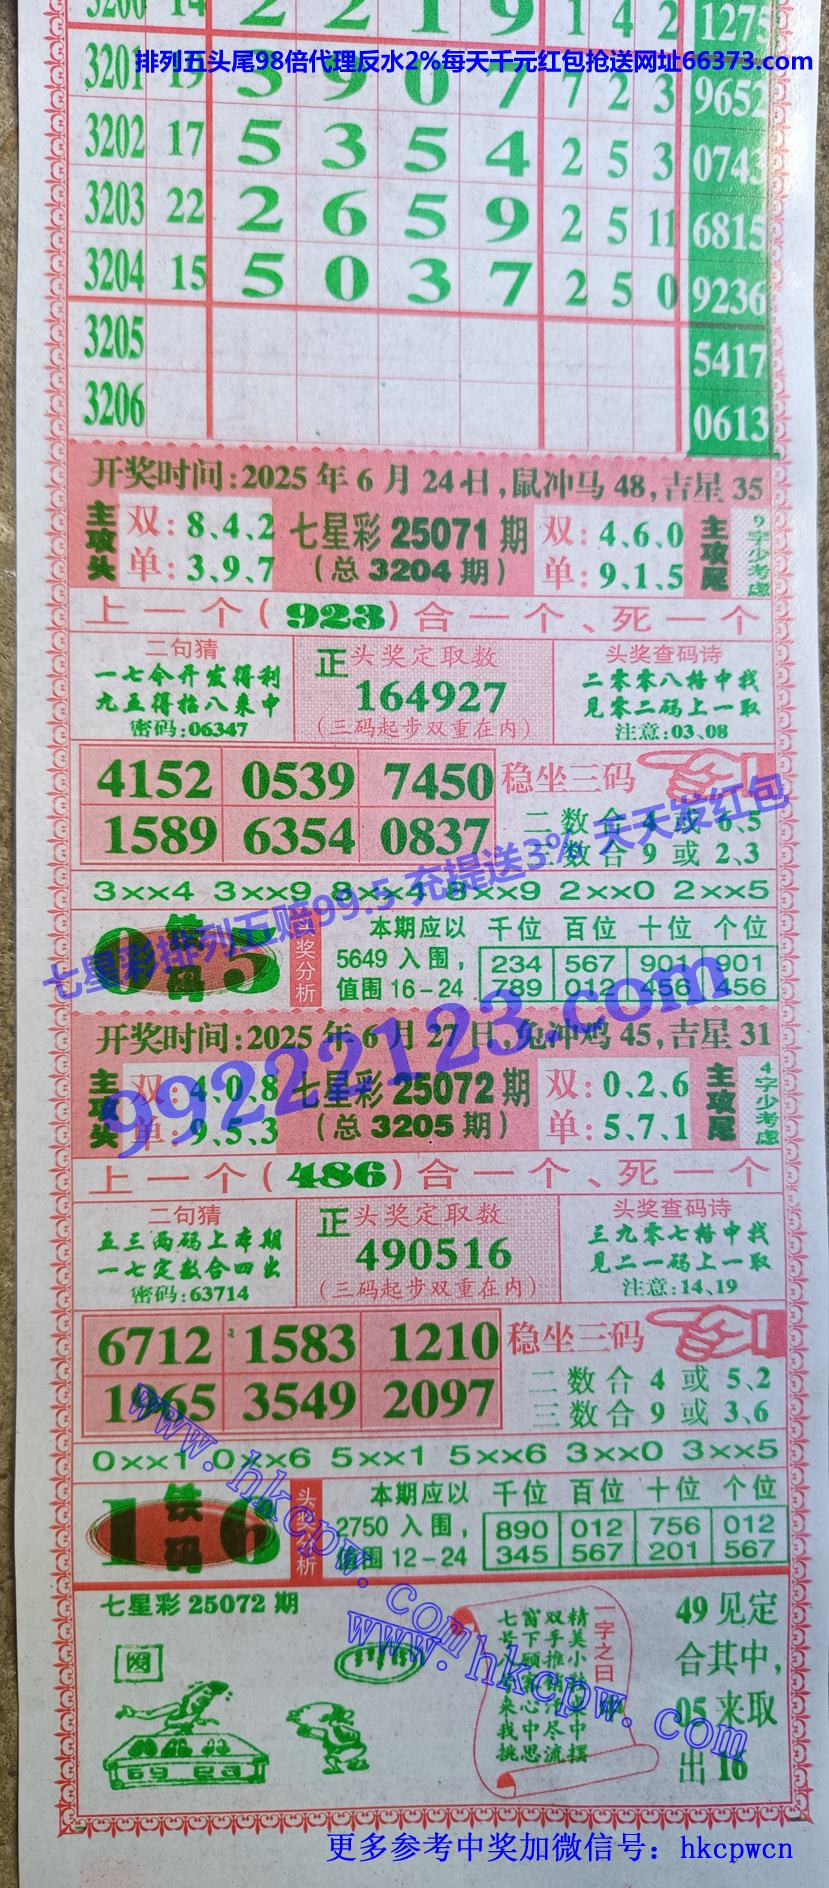 3200 14 2 2 1 9 1 4 2 1275
排列五头尾98倍代理反水2%每天千元红包抢送网址66373.com
3201 19 3 9 0 7 7 2 3 9652
3202 17 5 3 5 4 2 5 3 0743
3203 22 2 6 5 9 2 5 11 6815
3204 15 5 0 3 7 2 5 0 9236
3205 5417
3206 0613
开奖时间:2025年6月24日,鼠冲马48,吉星35
主攻头 双:8、4、2 七星彩25071期 双:4、6、0 主攻尾 9字少考虑
单:3、9、7 (总3204期) 单:9、1、5
上一个(923)合一个、死一个
二句猜 正 头奖定取数 头奖查码诗
一七今开发得利 164927 二零零八格中找
九五得拾八来中 (三码起步双重在内) 见零二码上一取
密码:06347 注意:03、08
4152 0539 7450 稳坐三码
1589 6354 0837 二数合4或6、5
三数合9或2、3
3××4 3××9 8××4 8××9 2××0 2××5
七星彩排列五赔99.5 充提送3% 天天发红包
0 铁码 5 头奖分析 本期应以 千位 百位 十位 个位
5649入围, 234 567 901 901
值围16-24 789 012 456 456
99222123.com
开奖时间:2025年6月27日,兔冲鸡45,吉星31
主攻头 双:4、0、8 七星彩25072期 双:0、2、6 主攻尾 4字少考虑
单:9、5、3 (总3205期) 单:5、7、1
上一个(486)合一个、死一个
二句猜 正 头奖定取数 头奖查码诗
五三两码上本期 490516 三九零七格中找
一七定数合四出 (三码起步双重在内) 见二一码上一取
密码:63714 注意:14、19
6712 1583 1210 稳坐三码
1965 3549 2097 二数合4或5、2
三数合9或3、6
0××1 0××6 5××1 5××6 3××0 3××5
1 铁码 6 头奖分析 本期应以 千位 百位 十位 个位
2750入围, 890 012 756 012
值围12-24 345 567 201 567
www.hkcpw.com
www.hkcpw.com
七星彩25072期
圈
一字之曰
49见定
合其中,
05来取
出16
更多参考中奖加微信号：hkcpwcn